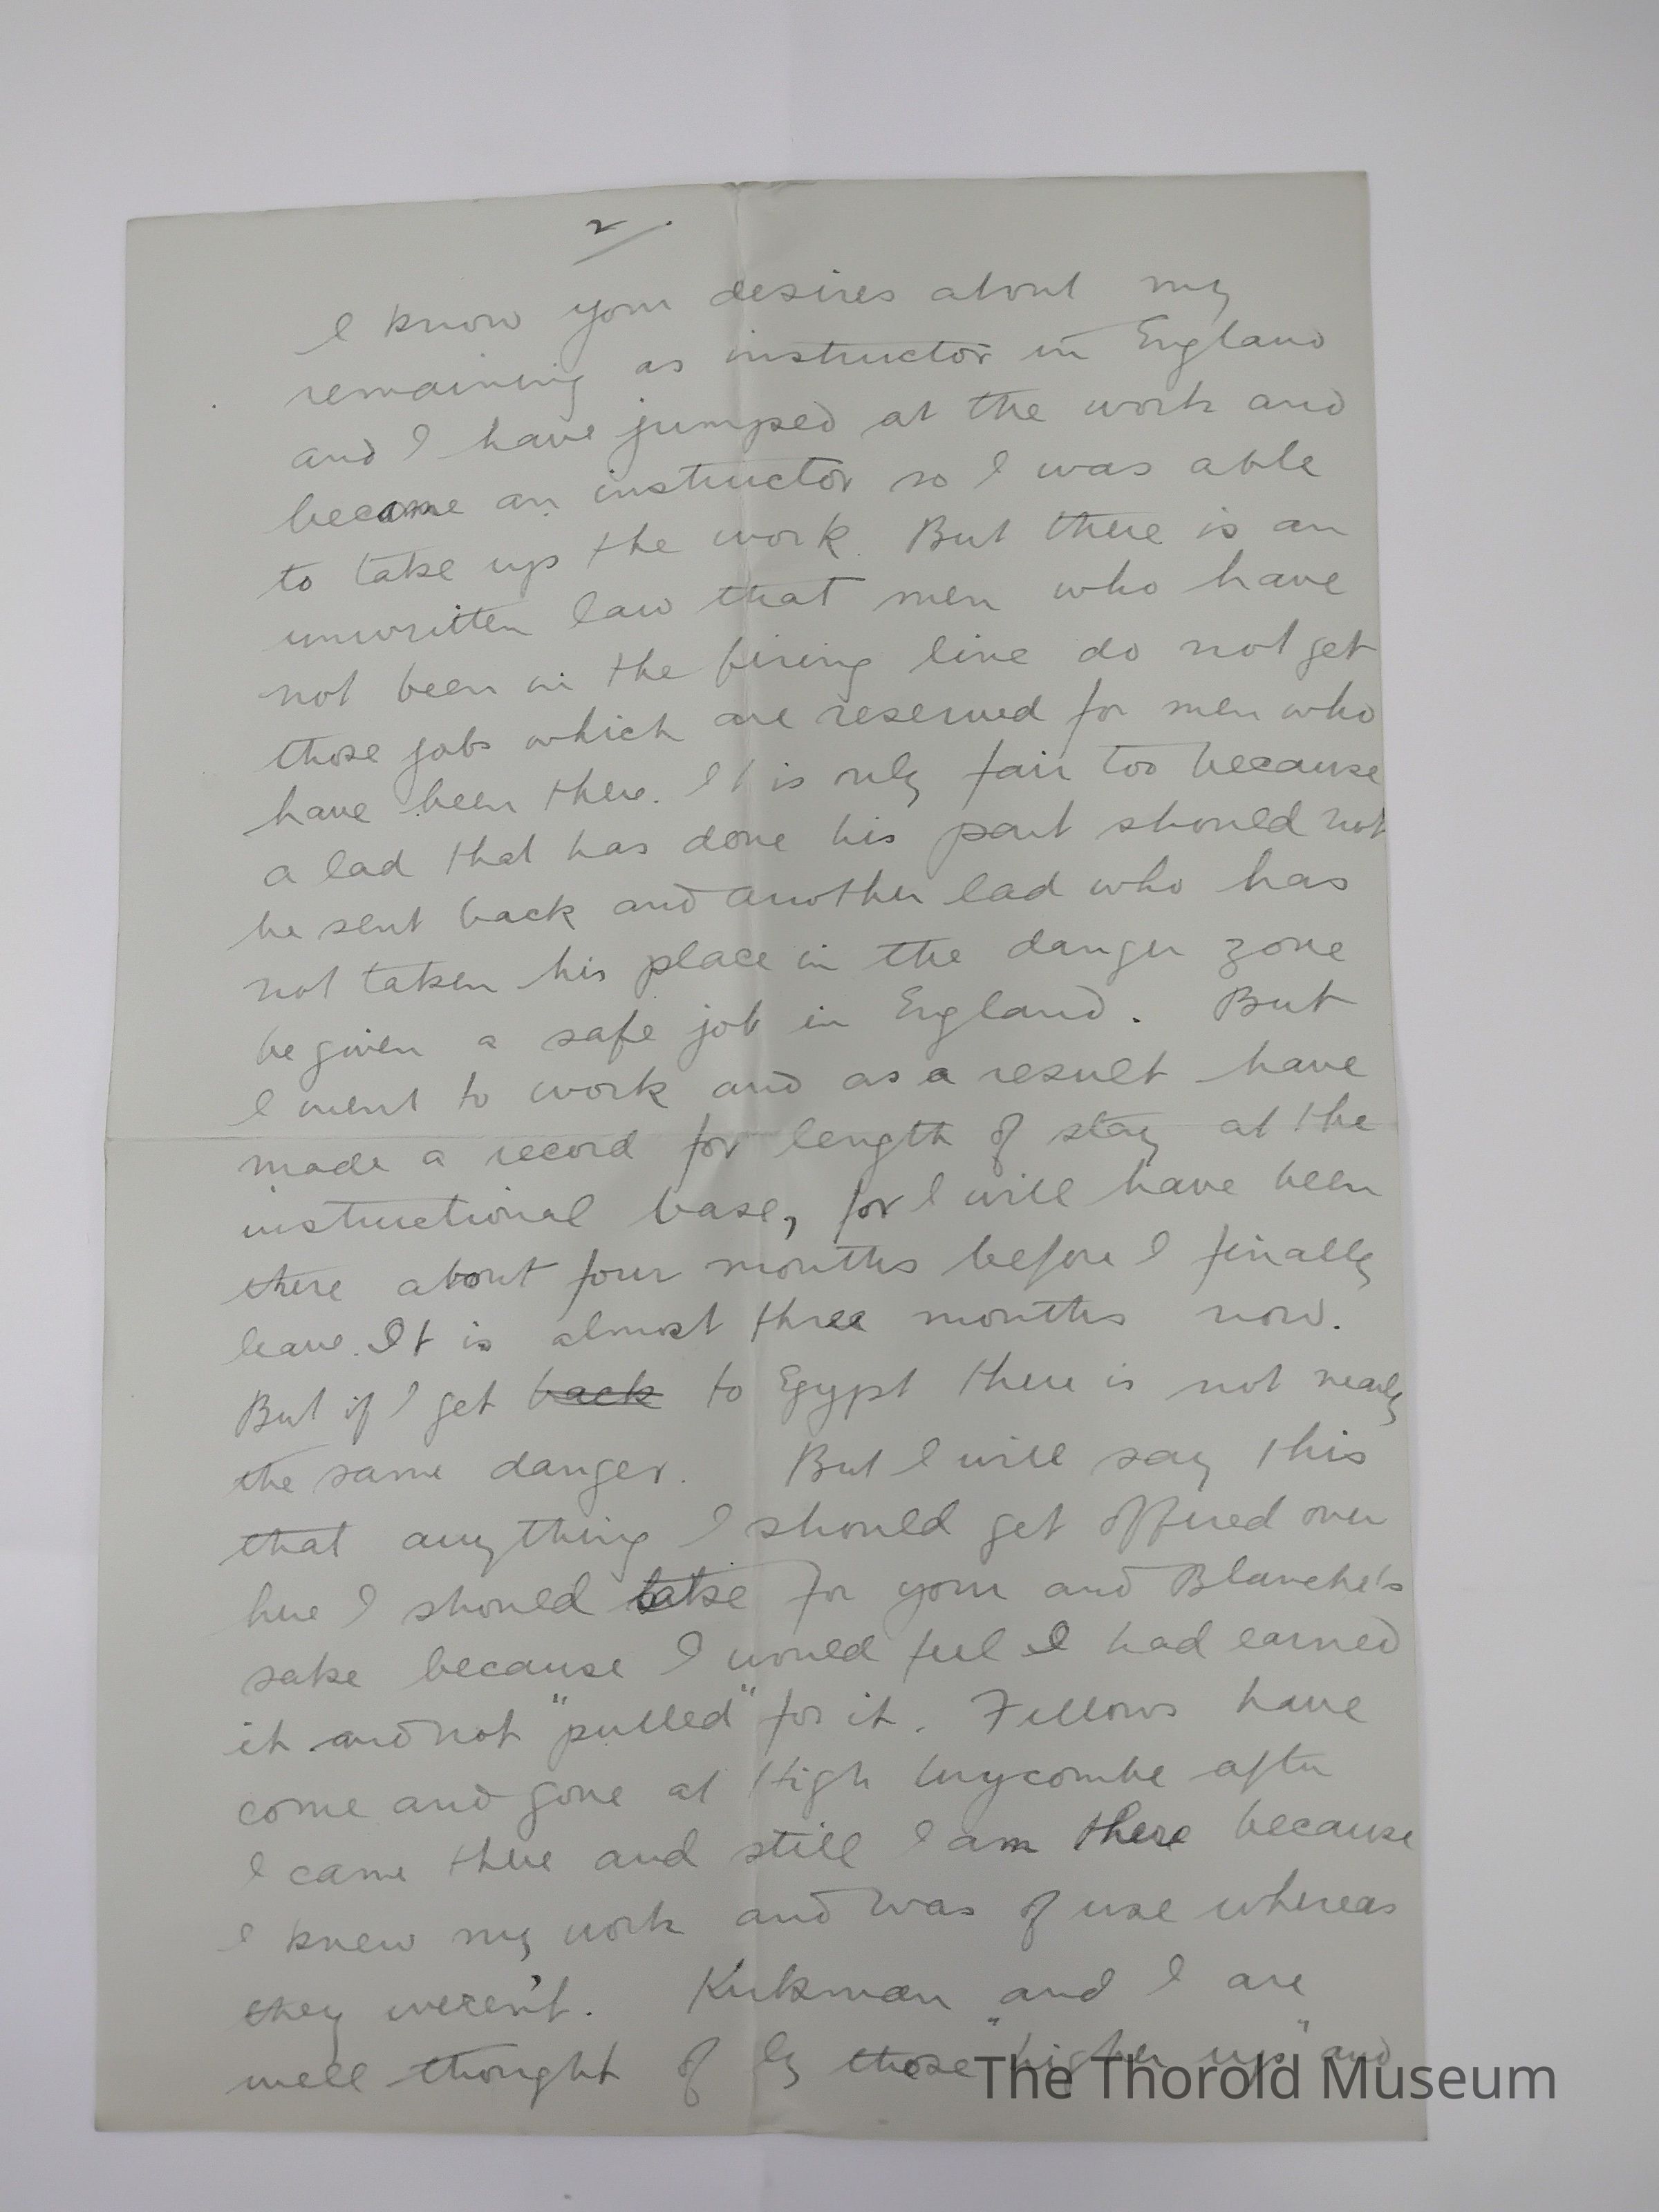 2/.
I know your desires about my
remaining as instructor in England
and I have jumped at the work and
became an instructor so I was able
to take up the work. But there is an
unwritten law that men who have
not been in the firing line do not get
those jobs which are reserved for men who
have been there. It is only fair too because
a lad that has done his part should not
be sent back and another lad who has
not taken his place in the danger zone
be given a safe job in England. But
I went to work and as a result have
made a record for length of stay at the
instructional base, for I will have been
there about four months before I finally
leave. It is almost three months now.
But if I get back to Egypt there is not nearly
the same danger. But I will say this
that anything I should get offered over
here I should take for your and Blanche's
sake because I would feel I had earned
it and not "pulled" for it. Fellows have
come and gone at High Wycombe after
I came there and still I am there because
I knew my work and was of use whereas
they weren't. Kirkman and I are
well thought of by those "higher up" and
The Thorold Museum